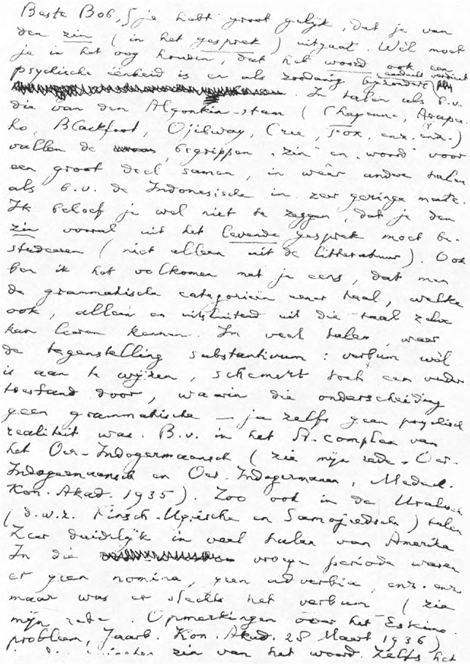 Beste Bob, je hebt groot gelijk, dat je van
den zin (in het gesprek) uitgaat. Wèl moet
je in het oog houden, dat het woord ook een
psychische eenheid is en als zoodanig
In talen als b.v.
die van den Algonkin-stam (Cheyenne, Arapa-
ho, Blackfoot, Ojibway, Cree, Fox, enz. enz.)
vallen de begrippen zin en woord voor
een groot deel samen, in wéér andere talen
als b.v. de Indonesische in zeer geringe mate.
Ik behoef je wel niet te zeggen, dat je den
zin vooral uit het levende gesprek moet be-
studeeren (niet alleen uit de litteratuur). Ook
ben ik het volkomen met je eens, dat men
de grammatische categorieën eener taal, welke
ook, alleen en uitsluitend uit die taal zelve
kan leeren kennen. In veel talen, waar
de tegenstelling substantivum : verbum wèl
is aan te wijzen, schemert toch een ouder
toestand door, waarin die onderscheiding
geen grammatische — ja zelfs geen psychisch
realiteit was. B.v. in het A-complex van
het Oer-Indogermaansch (zie mijn rede Oer-
Indogermaansch en Oer-Indogermanen, Meded.
Kon. Akad. 1935). Zoo ook in de Uralische
(d.w.z. Finsch-Ugrische en Samojedische) talen
Zeer duidelijk in veel talen van Amerika
In die vroege periode waren
er geen nomina, geen adverbia, enz. enz.
maar was er slechts het verbum (zie
mijn rede Opmerkingen over het Eskimo-
probleem, Jaarb. Kon. Akad. 28 Maart 1936)
zin van het woord. Zelfs het